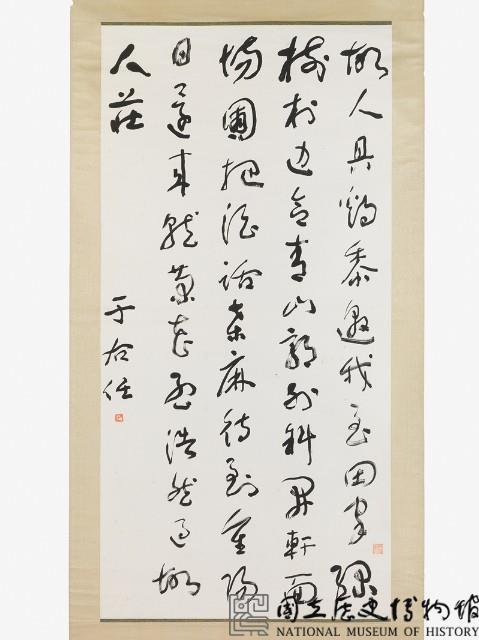 故人具鷄黍邀我至田家綠
樹村边合青山郭外斜開軒面
場圃把酒話桑麻待到重陽
日還來就菊花孟浩然過故
人莊
于右任
國立歷史博物館
NATIONAL MUSEUM OF HISTORY